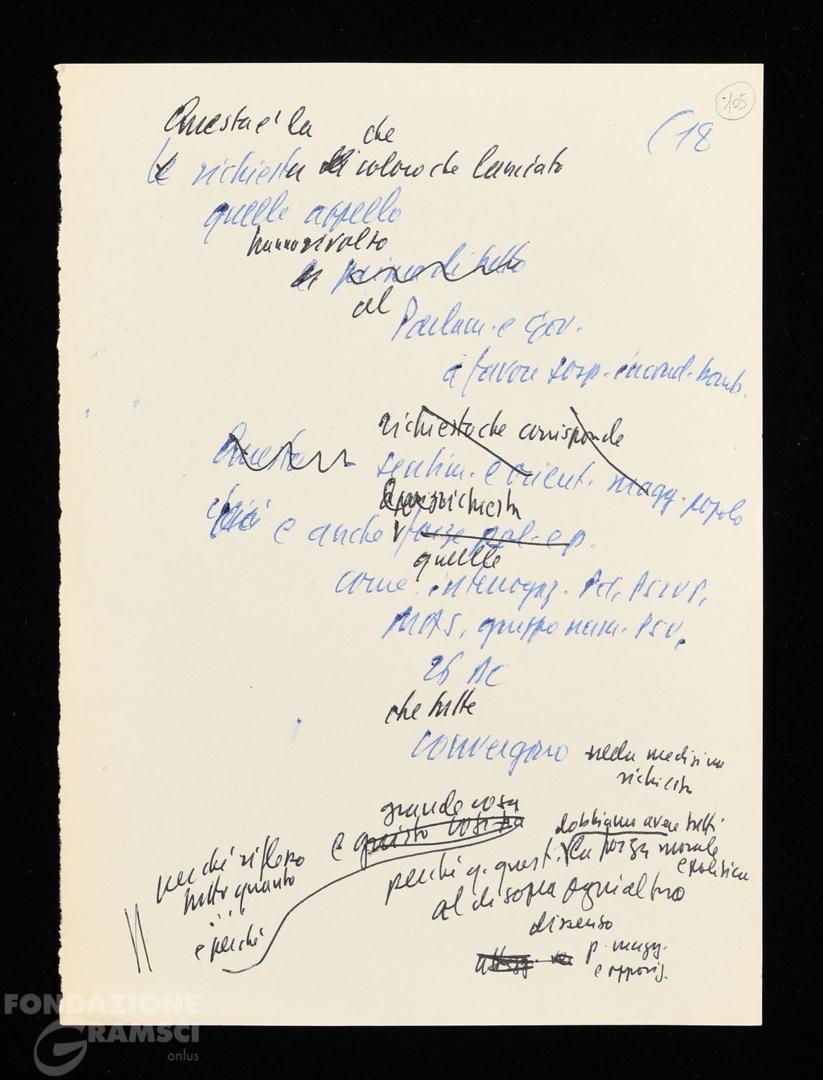 105
(18
Questa è la che
richiesta di coloro che lanciato
quelle appello
hanno rivolto
di prima di tutto
al
Parlam. e Gov.
a favore sosp. incond. bomb.
richiesta che corrisponde
Questo sentim. e orient. magg. popolo
richiesta
è anche forze pol. e p.
quelle
come interrogaz. Pci, Psiup,
MAS, gruppo parl. Psu,
26 DC
che tutte
convergono nella medesima
richiesta
grande cosa
e questo dobbiamo avere tutti
perché riflesso
tutto quanto
perché q. questi la forza morale
e politica
al di sopra ogni altro
e perché
dissenso
p. magg.
e opposiz.
FONDAZIONE
GRAMSCI
onlus